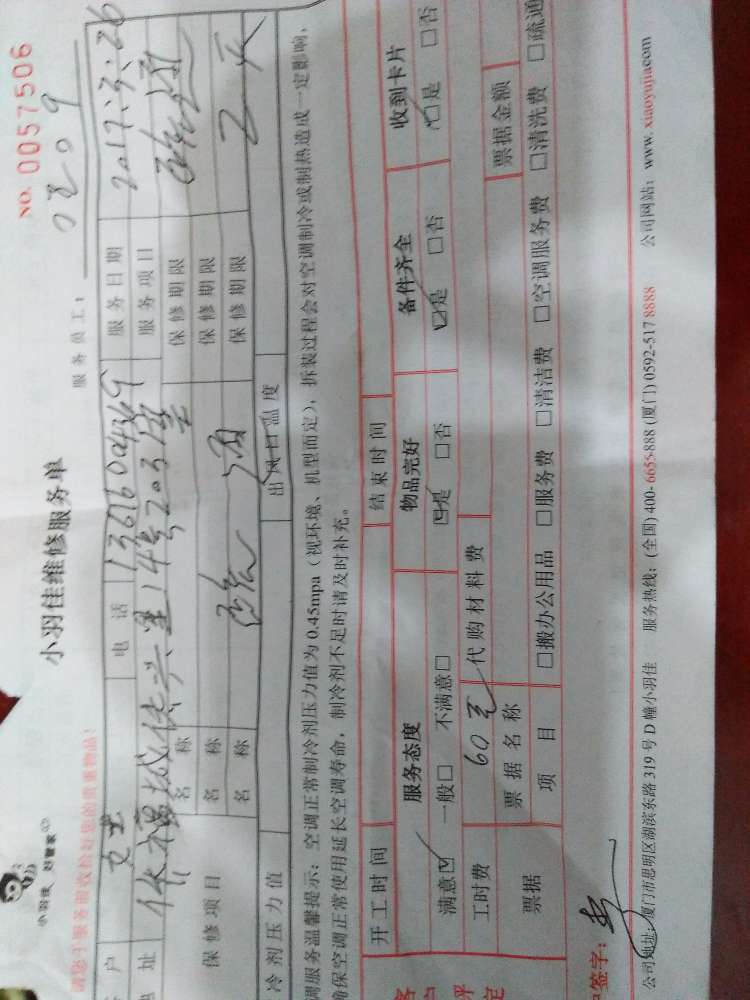 小羽佳 好管家
小羽佳维修服务单
NO. 0057506
请您于服务前收检好您的贵重物品!
服务员工: 0209
户 女士 电话 13616004369 服务日期 2017.3.26
址 服务项目
名称 保修期限
保修项目 名称 保修期限
名称 保修期限 2天
冷剂压力值 出风口温度
调服务温馨提示: 空调正常制冷剂压力值为 0.45mpa (视环境、机型而定), 拆装过程会对空调制冷或制热造成一定影响,
确保空调正常使用延长空调寿命, 制冷剂不足时请及时补充。
开工时间 结束时间
服务态度 物品完好 备件齐全 收到卡片
满意☑ 一般□ 不满意□ ☑是 □否 ☑是 □否 ☑是 □否
工时费 60元 代购材料费
票据 票据名称 票据金额
项目 □搬办公用品 □服务费 □清洁费 □空调服务费 □清洗费 □疏通
签字:
公司地址: 厦门市思明区湖滨东路 319 号 D 幢小羽佳 服务热线: (全国) 400-6655-888 (厦门) 0592-517 8888 公司网站: www. xiaoyujia.com